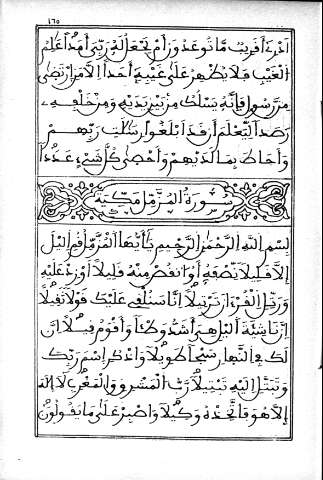 ٤٦٥
ادرے أقريب ما توعدون أم يجعل له ربى أمدا عالم
الغيب فلا يظهر على غيبه أحدا الا من ارتضى
من رسول فإنه يسلك من بين يديه ومن خلفه
رصدا ليعلم أن قد ابلغوا رسالات ربهم
وأحاط بما لديهم وأحصى كل شے عددا
سورة المزمل مكية
بسم الله الرحمن الرحيم يأيها المزمل قم اليل
الا قليلا نصفه أو انقص منه قليلا أو زد عليه
ورتل القرءان ترتيلا انا سنلقى عليك قولا ثقيلا
ان ناشئة اليل هى أشد وطئا وأقوم قيلا ان
لك فى النهار سبحا طويلا واذكر اسم ربك
وتبتل إليه تبتيلا رب المشرق والمغرب لا اله
الا هو فاتخذه وكيلا واصبر على ما يقولون